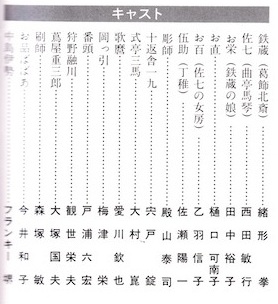 キャスト
鉄蔵（葛飾北斎） 緒形拳
佐七（曲亭馬琴） 西田敏行
お栄（鉄蔵の娘） 田中裕子
お直 樋口可南子
お百（佐七の女房） 乙羽信子
伍助（丁稚） 佐瀬陽一
彫師 殿山泰司
十返舎一九 宍戸錠
式亭三馬 大村崑
歌麿 愛川欽也
岡っ引 梅津栄
番頭 戸浦六宏
狩野融川 観世栄夫
蔦屋重三郎 大塚国夫
刷師 森塚敏
お品ばばあ 今井和子
中島伊勢 フランキー堺